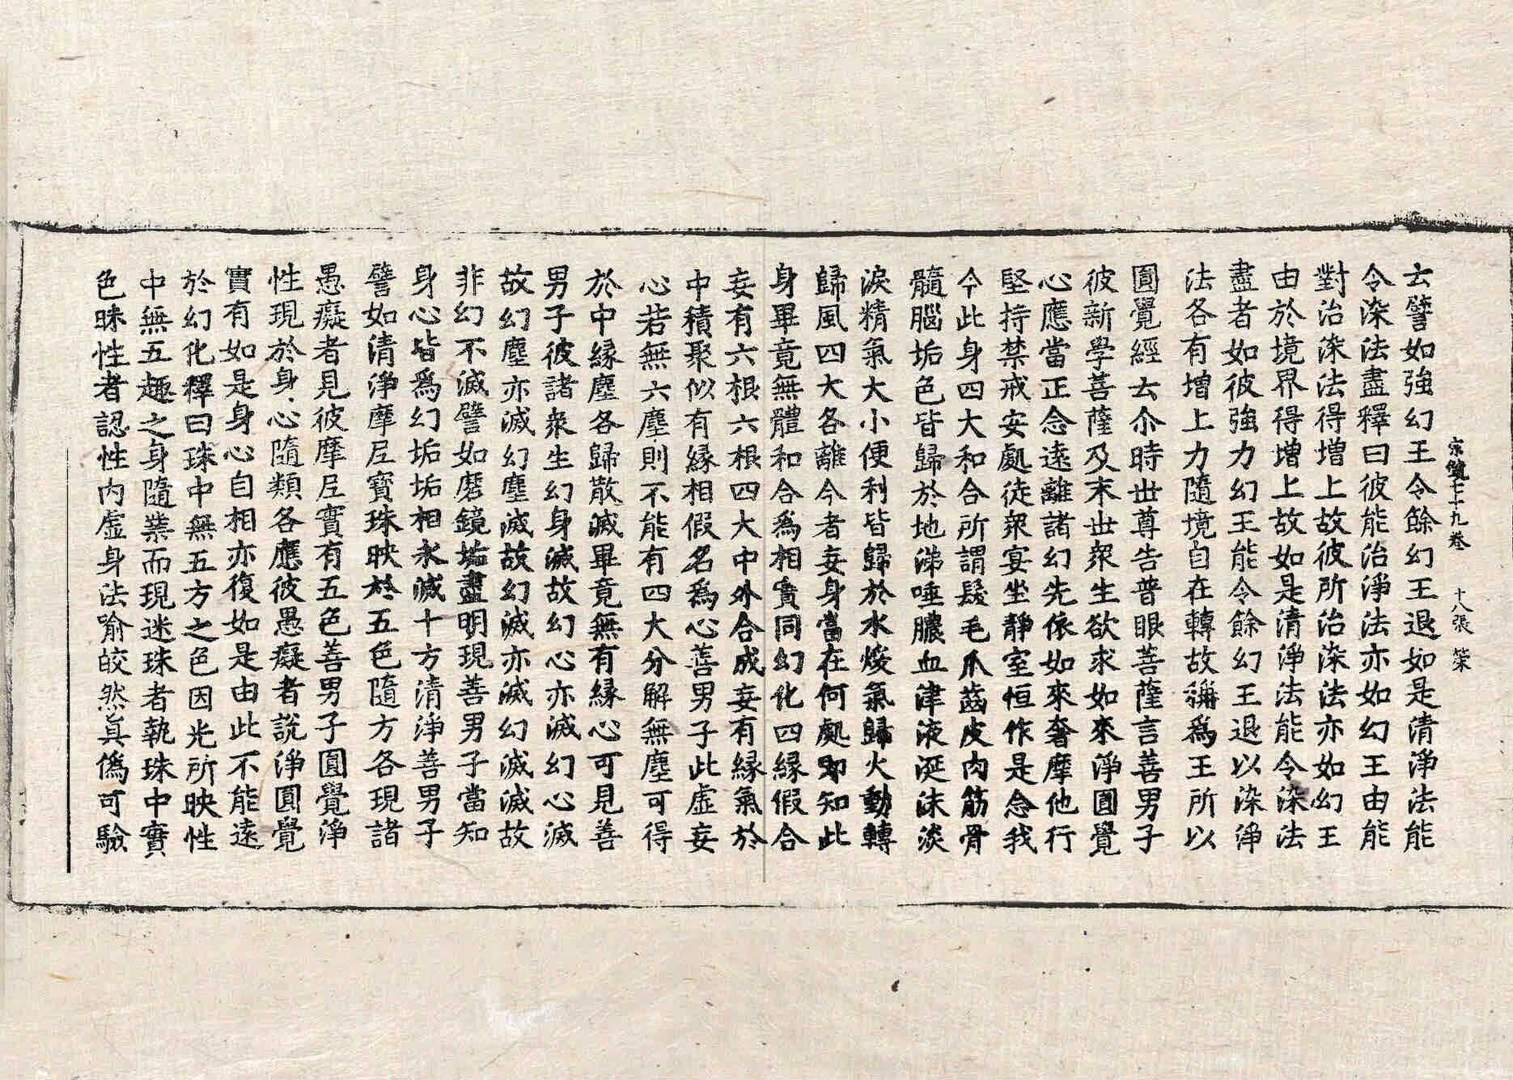 宗鏡七十九卷 十八張 䇿
去譬如強幻王令餘幻王退如是清淨法能
令染法盡釋曰彼能治淨法亦如幻王由能
對治染法得增上故彼所治染法亦如幻王
由於境界得增上故如是清淨法能令染法
盡者如彼強力幻王能令餘幻王退以染淨
法各有增上力隨境自在轉故稱爲王所以
圓覺經云尒時世尊告普眼菩薩言善男子
彼新學菩薩及末世衆生欲求如來淨圓覺
心應當正念遠離諸幻先依如來奢摩他行
堅持禁戒安處徒衆宴坐靜室恒作是念我
今此身四大和合所謂髮毛爪齒皮肉筋骨
髓腦垢色皆歸於地涕唾膿血津液涎沫淡
淚精氣大小便利皆歸於水煖氣歸火動轉
歸風四大各離今者妄身當在何處即知此
身畢竟無體和合爲相實同幻化四緣假合
妄有六根六根四大中外合成妄有緣氣於
中積聚似有緣相假名爲心善男子此虛妄
心若無六塵則不能有四大分解無塵可得
於中緣塵各歸散滅畢竟無有緣心可見善
男子彼諸衆生幻身滅故幻心亦滅幻心滅
故幻塵亦滅幻塵滅故幻滅亦滅幻滅滅故
非幻不滅譬如磨鏡垢盡明現善男子當知
身心皆爲幻垢垢相永滅十方清淨善男子
譬如清淨摩尼寶珠映於五色隨方各現諸
愚癡者見彼摩尼實有五色善男子圓覺淨
性現於身心隨類各應彼愚癡者說淨圓覺
實有如是身心自相亦復如是由此不能遠
於幻化釋曰珠中無五方之色因光所映性
中無五趣之身隨業而現迷珠者執珠中實
色昧性者認性內虛身法喻皎然眞僞可驗